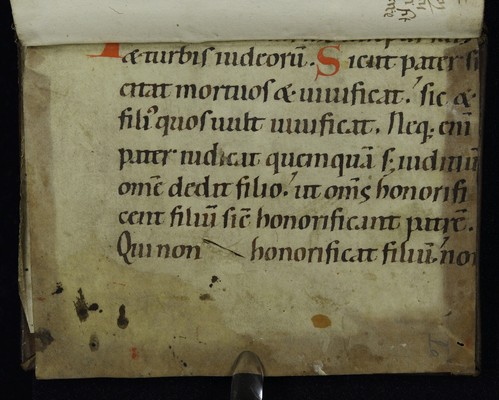 & turbis iudeorū. Sicut pater s
citat mortuos & uiuificat. sic &
fili' quos uult uiuificat. Neq. eni
pater iudicat quemquā s; iudiciū
omē dedit filio. ut omīs honorifi
cent filiū sic̄ honorificant patrē.
Qui non honorificat filiū. non